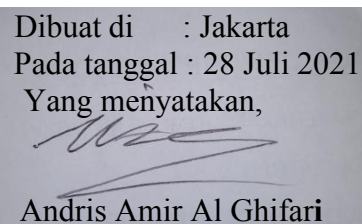 Dibuat di : Jakarta
Pada tanggal : 28 Juli 2021
Yang menyatakan,
Andris Amir Al Ghifari